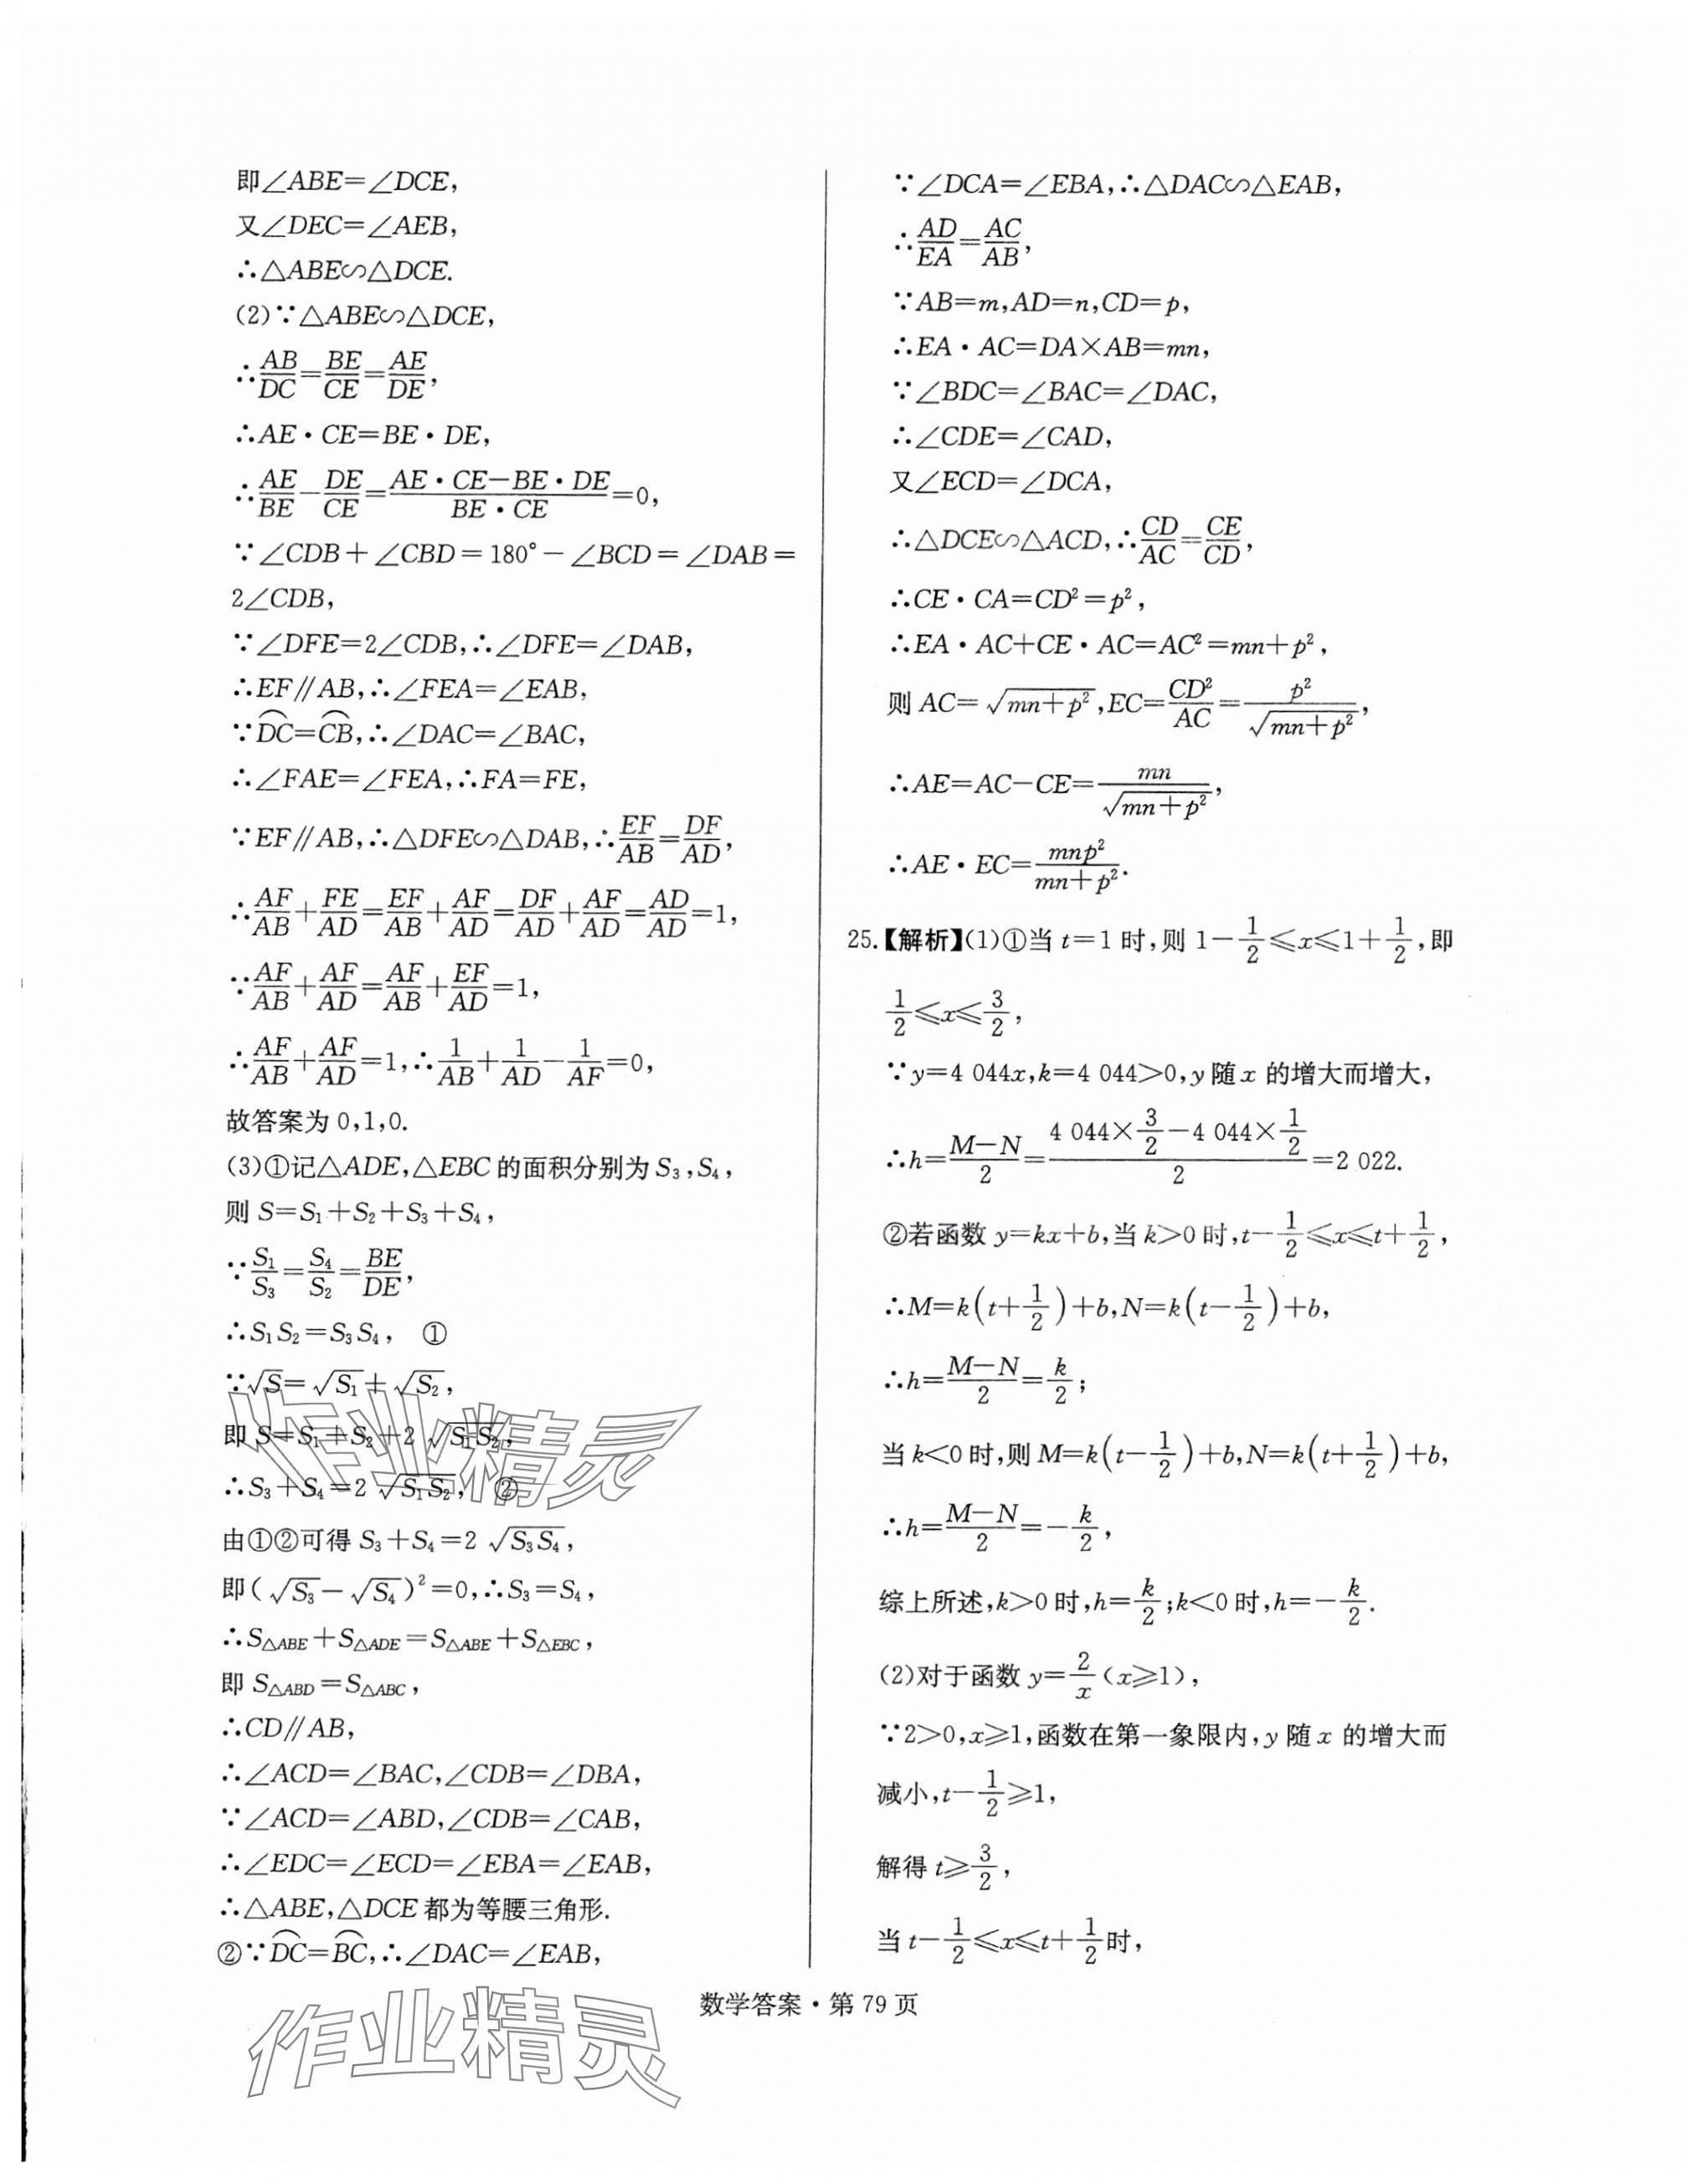 即∠ABE=∠DCE,
又∠DEC=∠AEB,
∴△ABE∽△DCE.
(2)∵△ABE∽△DCE,
∴AB/DC=BE/CE=AE/DE,
∴AE·CE=BE·DE,
∴AE/BE-DE/CE=(AE·CE-BE·DE)/(BE·CE)=0,
∵∠CDB+∠CBD=180°-∠BCD=∠DAB=
2∠CDB,
∵∠DFE=2∠CDB,∴∠DFE=∠DAB,
∴EF∥AB,∴∠FEA=∠EAB,
∵⌒DC=⌒CB,∴∠DAC=∠BAC,
∴∠FAE=∠FEA,∴FA=FE,
∵EF∥AB,∴△DFE∽△DAB,∴EF/AB=DF/AD,
∴AF/AB+FE/AD=EF/AB+AF/AD=DF/AD+AF/AD=AD/AD=1,
∵AF/AB+AF/AD=AF/AB+EF/AD=1,
∴AF/AB+AF/AD=1,∴1/AB+1/AD-1/AF=0,
故答案为 0,1,0.
(3)①记△ADE,△EBC 的面积分别为 S₃,S₄,
则 S=S₁+S₂+S₃+S₄,
∵S₁/S₃=S₄/S₂=BE/DE,
∴S₁S₂=S₃S₄, ①
∵√S=√S₁+√S₂,
即 S=S₁+S₂+2√(S₁S₂),
∴S₃+S₄=2√(S₁S₂), ②
由①②可得 S₃+S₄=2√(S₃S₄),
即(√S₃-√S₄)²=0,∴S₃=S₄,
∴S△ABE+S△ADE=S△ABE+S△EBC,
即 S△ABD=S△ABC,
∴CD∥AB,
∴∠ACD=∠BAC,∠CDB=∠DBA,
∵∠ACD=∠ABD,∠CDB=∠CAB,
∴∠EDC=∠ECD=∠EBA=∠EAB,
∴△ABE,△DCE 都为等腰三角形.
②∵⌒DC=⌒BC,∴∠DAC=∠EAB,
∵∠DCA=∠EBA,∴△DAC∽△EAB,
∴AD/EA=AC/AB,
∵AB=m,AD=n,CD=p,
∴EA·AC=DA×AB=mn,
∵∠BDC=∠BAC=∠DAC,
∴∠CDE=∠CAD,
又∠ECD=∠DCA,
∴△DCE∽△ACD,∴CD/AC=CE/CD,
∴CE·CA=CD²=p²,
∴EA·AC+CE·AC=AC²=mn+p²,
则 AC=√(mn+p²),EC=CD²/AC=p²/√(mn+p²),
∴AE=AC-CE=mn/√(mn+p²),
∴AE·EC=mnp²/(mn+p²).
25.【解析】(1)①当 t=1 时,则 1-1/2≤x≤1+1/2,即
1/2≤x≤3/2,
∵y=4 044x,k=4 044>0,y 随 x 的增大而增大,
∴h=(M-N)/2=(4 044×3/2-4 044×1/2)/2=2 022.
②若函数 y=kx+b,当 k>0 时,t-1/2≤x≤t+1/2,
∴M=k(t+1/2)+b,N=k(t-1/2)+b,
∴h=(M-N)/2=k/2;
当 k<0 时,则 M=k(t-1/2)+b,N=k(t+1/2)+b,
∴h=(M-N)/2=-k/2,
综上所述,k>0 时,h=k/2;k<0 时,h=-k/2.
(2)对于函数 y=2/x(x≥1),
∵2>0,x≥1,函数在第一象限内,y 随 x 的增大而
减小,t-1/2≥1,
解得 t≥3/2,
当 t-1/2≤x≤t+1/2时,
数学答案·第 79 页
作业精灵
作业精灵